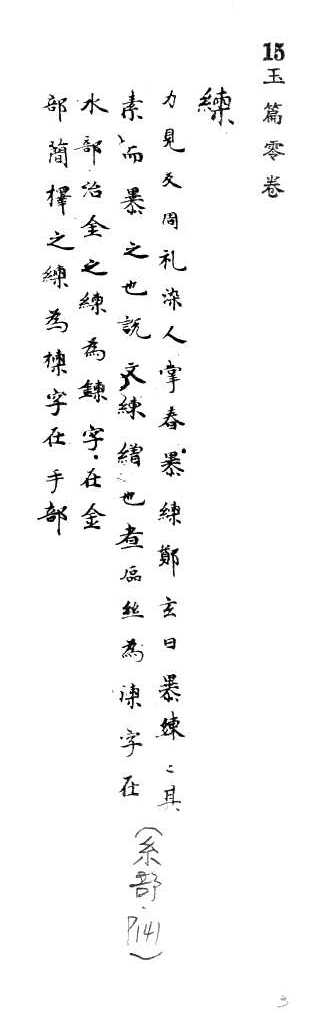 15玉篇零卷
練
力見反周礼染人掌春暴練鄭玄曰暴練〻其
素而暴之也說文練繒也煮漚絲為湅字在
水部冶金之練為鍊字在金
部簡擇之練為揀字在手部
(糸部.P141)
3